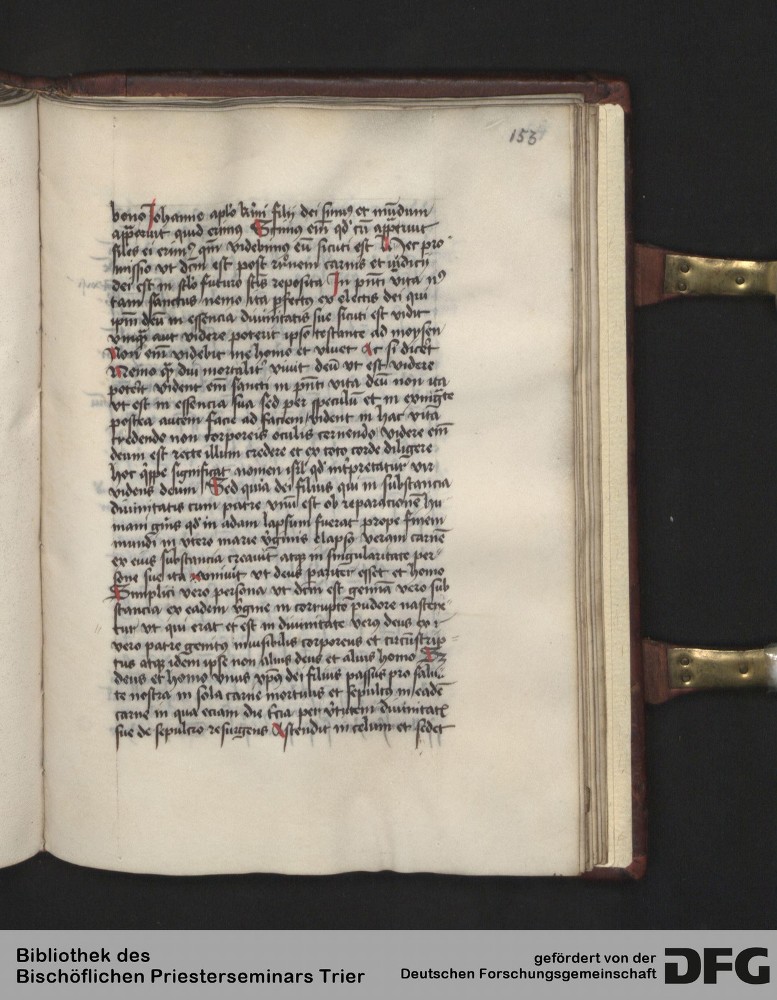 153
bono Johanne aplo kr̄mi filij dei simꝰ et nūdum
apparuit quid erimꝰ Scimus em̄ qd cū apparuit
siles ei erimꝰ qm̄ videbimꝰ eū sicuti est Hec pro
missio ut dcm̄ est post
dei est in futuro reposita In pn̄ti vita nꝰ
tam sanctus nemo ita pfectꝰ ex electis dei qui
ipm̄ deū in essencia diuinitatis sue sicuti est vidit
vnqꝫ aut videre poterit ipso testante ad moysen
Non em̄ videbit me homo et viuet Ac si dicēt
Nemo qui mortalitˀ viuit deū vt est videre
poterit vident em̄ sancti in pn̄ti vita deū non ita
vt est in essencia sua sed per speculū et in enigmte
postea autem facie ad faciem vident in hac vita
credendo non corporeis oculis cernendo videre em̄
deum est recte illum credere et ex toto corde diligere
hoc qͥppe significat nomen isrl̄ qd int̄pretatur vir
videns deum Sed quia dei filius qui in substancia
diuinitatis cum patre vnū est ob reparacionē hu
mani gn̄is qd in adam lapsum fuerat prope finem
mundi in vtero marie v̄ginis elapsꝰ veram carnē
ex eius substancia creauit atqꝫ in singularitate per
sone sue ita vniuit vt deus pariter esset et homo
Simplici vero persona vt dcm̄ est gemina vero sub
stancia ex eadem v̄gine in corrupto pudore nascere
tur vt qui erat et est in diuinitate verꝰ deus ex
vero patre genitꝰ inuisibilis corporeus et circūscrip
tus atqꝫ idem ipse non alius deus et alius homo Sꝫ
deus et homo vnus xpūs dei filius passus pro salu
te nostra in sola carne mortuus et sepultꝰ in eadē
carne in qua eciam die tercia per v̄tutem diuinitatꝭ
sue de sepulcro resurgens Ascendit in celum et sedet
Bibliothek des
Bischöflichen Priesterseminars Trier
gefördert von der
Deutschen Forschungsgemeinschaft
DFG